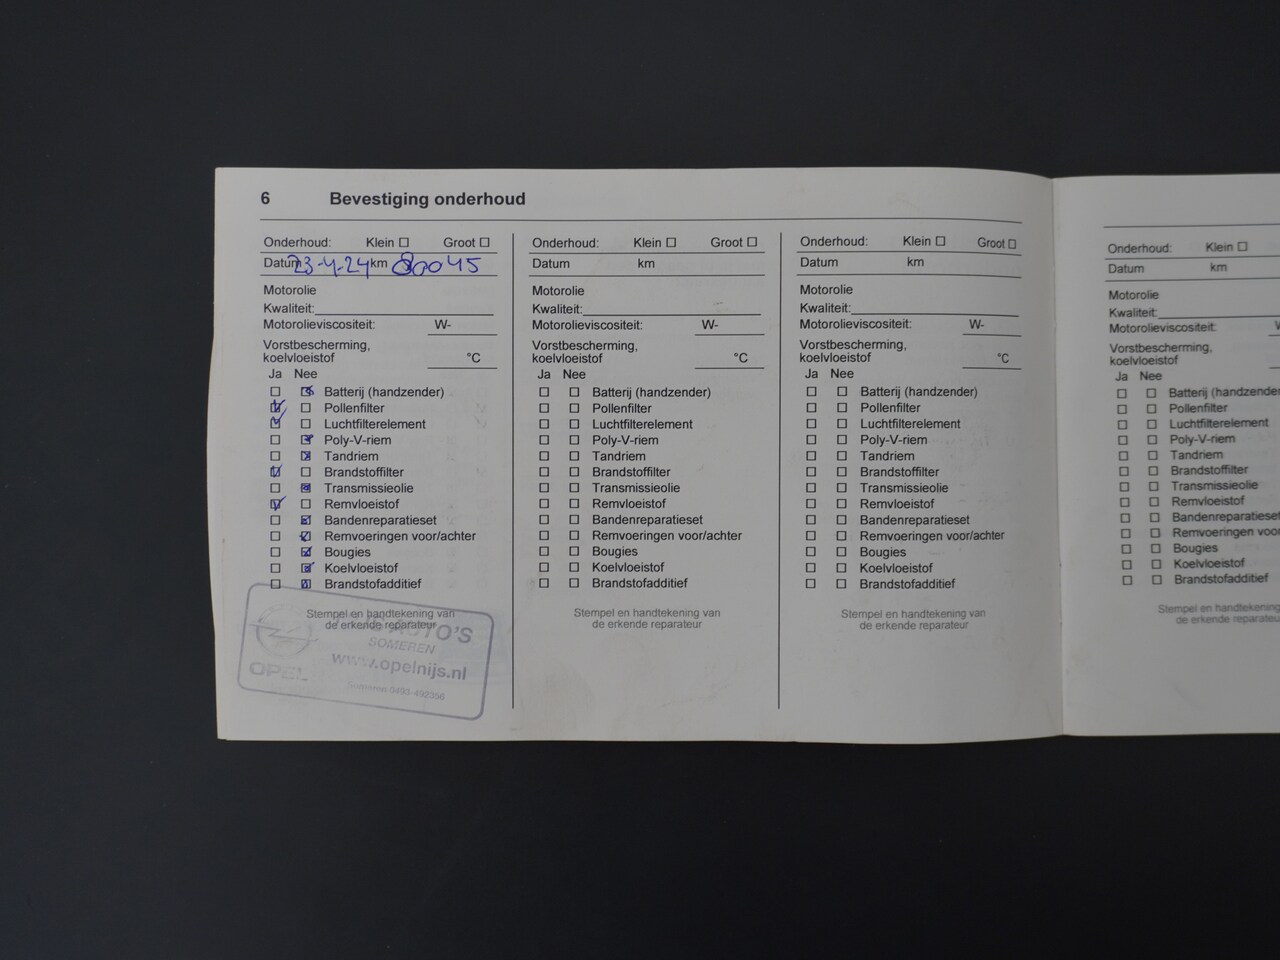 6 Bevestiging onderhoud
Onderhoud: Klein ☐ Groot ☐
Datum 23-4-24 km 80045
Motorolie
Kwaliteit:
Motorolieviscositeit: W-
Vorstbescherming,
koelvloeistof °C
Ja Nee
Batterij (handzender)
Pollenfilter
Luchtfilterelement
Poly-V-riem
Tandriem
Brandstoffilter
Transmissieolie
Remvloeistof
Bandenreparatieset
Remvoeringen voor/achter
Bougies
Koelvloeistof
Brandstofadditief
Stempel en handtekening van
de erkende reparateur
AUTO'S
SOMEREN
www.opelnijs.nl
OPEL
Someren 0493-492356
Onderhoud: Klein ☐ Groot ☐
Datum km
Motorolie
Kwaliteit:
Motorolieviscositeit: W-
Vorstbescherming,
koelvloeistof °C
Ja Nee
Batterij (handzender)
Pollenfilter
Luchtfilterelement
Poly-V-riem
Tandriem
Brandstoffilter
Transmissieolie
Remvloeistof
Bandenreparatieset
Remvoeringen voor/achter
Bougies
Koelvloeistof
Brandstofadditief
Stempel en handtekening van
de erkende reparateur
Onderhoud: Klein ☐ Groot ☐
Datum km
Motorolie
Kwaliteit:
Motorolieviscositeit: W-
Vorstbescherming,
koelvloeistof °C
Ja Nee
Batterij (handzender)
Pollenfilter
Luchtfilterelement
Poly-V-riem
Tandriem
Brandstoffilter
Transmissieolie
Remvloeistof
Bandenreparatieset
Remvoeringen voor/achter
Bougies
Koelvloeistof
Brandstofadditief
Stempel en handtekening van
de erkende reparateur
Onderhoud: Klein ☐
Datum km
Motorolie
Kwaliteit:
Motorolieviscositeit:
Vorstbescherming,
koelvloeistof
Ja Nee
Batterij (handzende
Pollenfilter
Luchtfilterelement
Poly-V-riem
Tandriem
Brandstoffilter
Transmissieolie
Remvloeistof
Bandenreparatieset
Remvoeringen voo
Bougies
Koelvloeistof
Brandstofadditief
Stempel en handtekening
de erkende reparateu